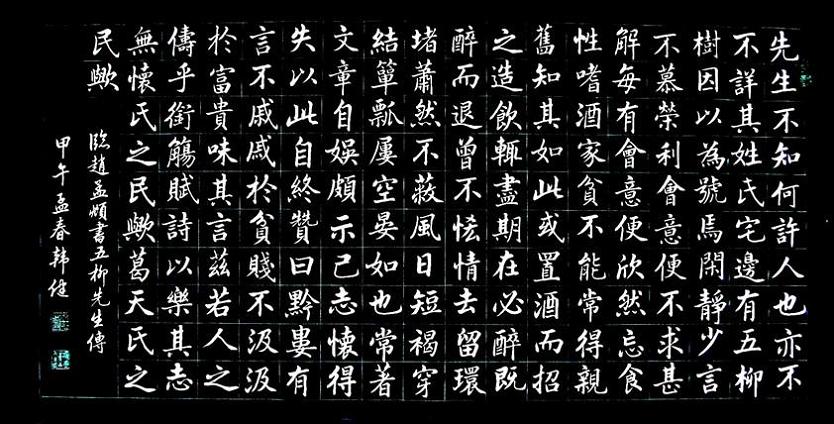 先生不知何許人也亦不
不詳其姓氏宅邊有五柳
樹因以為號焉閑靜少言
不慕榮利會意便不求甚
解每有會意便欣然忘食
性嗜酒家貧不能常得親
舊知其如此或置酒而招
之造飲輒盡期在必醉既
醉而退曾不恡情去留環
堵蕭然不蔽風日短褐穿
結簞瓢屢空晏如也常著
文章自娛頗示己志懷得
失以此自終贊曰黔婁有
言不戚戚於貧賤不汲汲
於富貴味其言茲若人之
儔乎銜觴賦詩以樂其志
無懷氏之民歟葛天氏之
民歟
臨趙孟頫書五柳先生傳
甲午孟春韓健